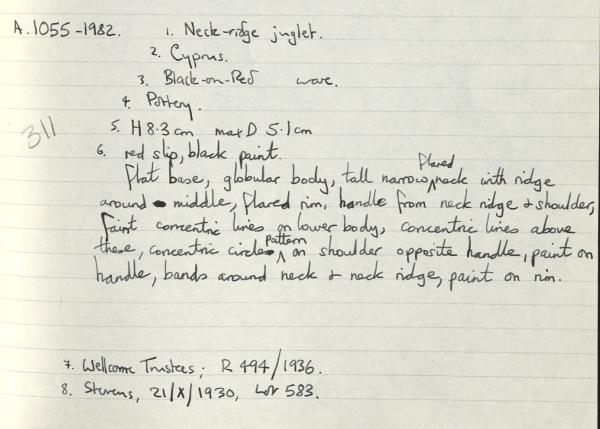 A.1055-1982. 1. Neck-ridge juglet.
2. Cyprus.
3. Black-on-Red ware.
4. Pottery.
311
5. H 8.3cm max D 5.1cm
6. red slip, black paint.
Flat base, globular body, tall narrow flared neck with ridge
around middle, flared rim, handle from neck ridge & shoulder,
faint concentric lines on lower body, concentric lines above
these, concentric circle pattern on shoulder opposite handle, paint on
handle, bands around neck & neck ridge, paint on rim.
7. Wellcome Trustees; R 494/1936.
8. Stevens, 21/X/1930, Lot 583.